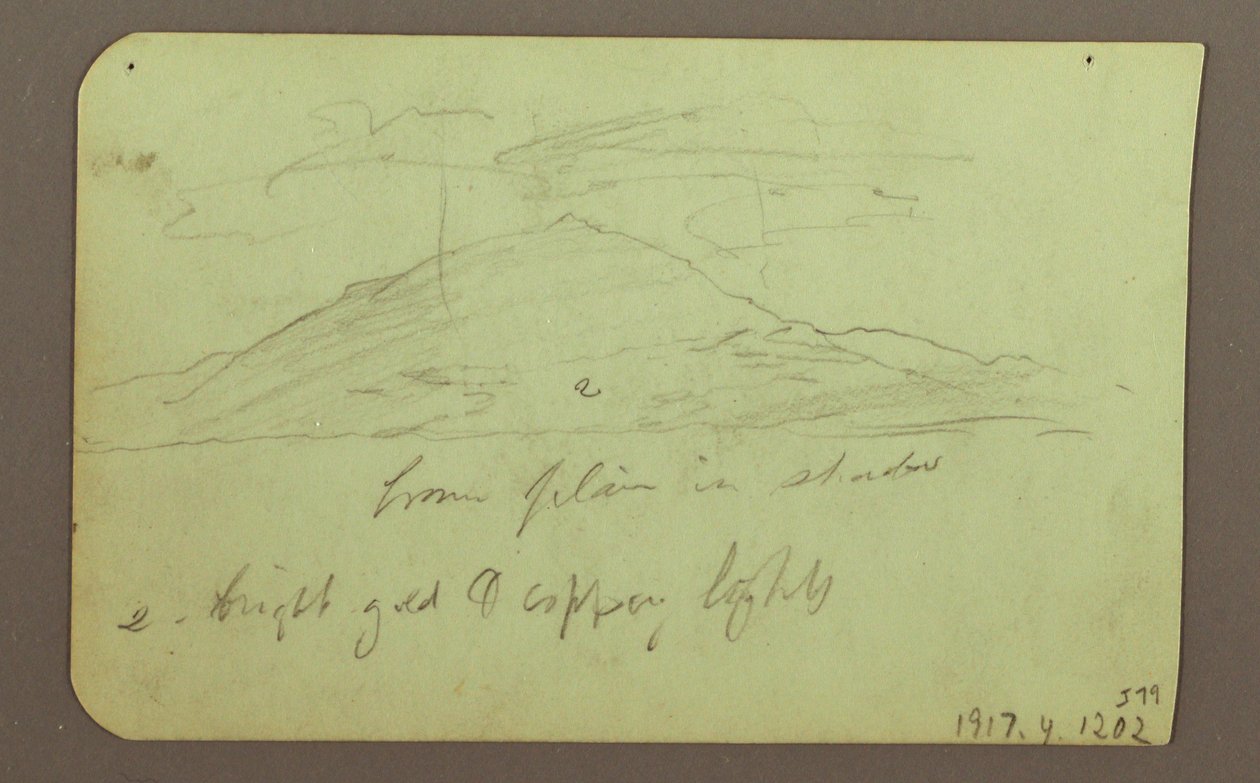 2
brown plain in shadow
2 - bright gold & coppery lights
J 79
1917. 4. 1202